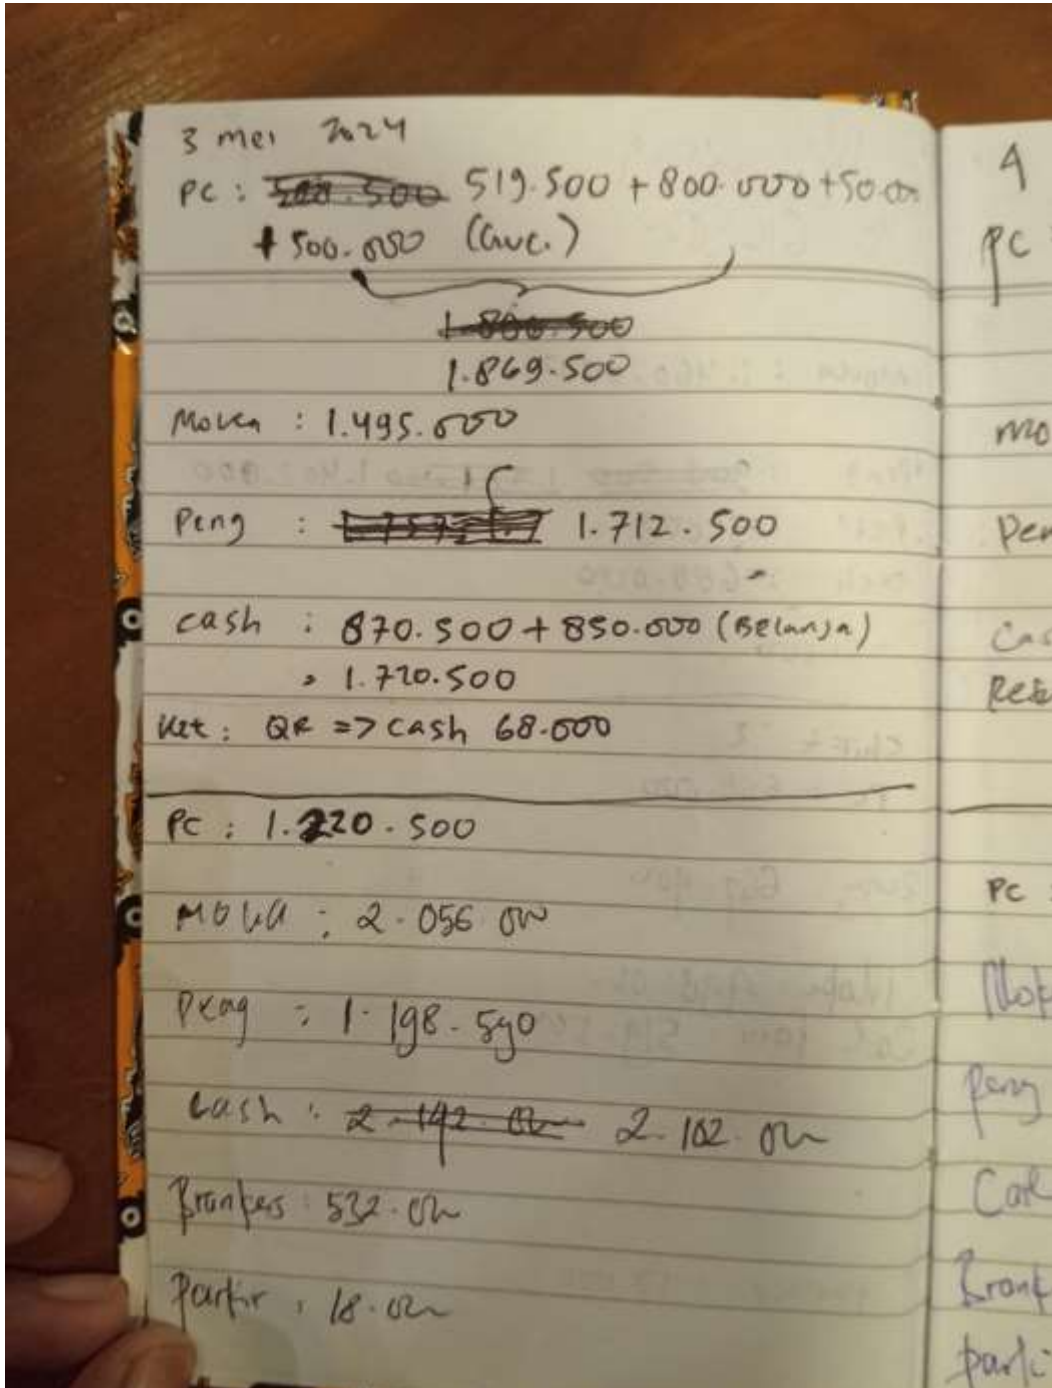 3 mei 2024
PC : 519.500 + 800.000 + 50.000
+ 500.000
1.800.500
1.869.500
Moka : 1.495.000
Peng : 1.712.500
cash : 870.500 + 850.000 (Belanja)
= 1.720.500
Ket : QR => cash 68.000
PC : 1.220.500
MOKA : 2.056.000
Peng : 1.198.590
cash : 2.192.000 2.102.000
Brankas : 532.000
Parkir : 18.000
4
PC :
mo
Pen
Cas
PC :
Mok
Peng
Cash
Brank
parki